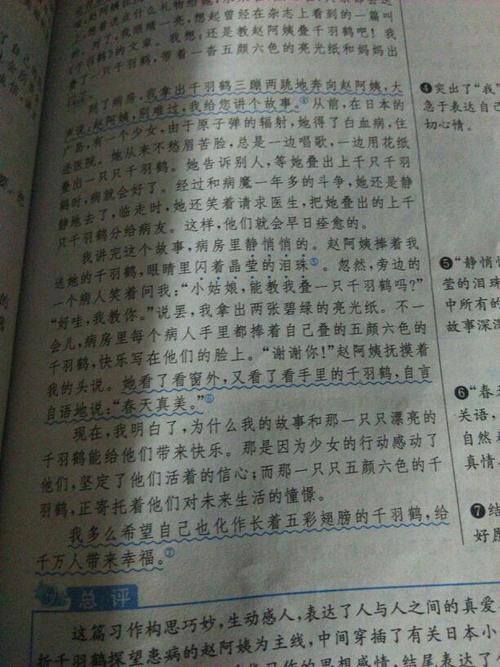 想着说什么礼物给她
的，对了，我眼睛一亮，想起曾经在杂志上看到的一篇叫
《千羽鹤》的文章。我想：还是教赵阿姨叠千羽鹤吧！我
叠了一只千羽鹤，带着一沓五颜六色的亮光纸和妈妈出
到了病房，我拿出千羽鹤三蹦两跳地奔向赵阿姨，大
声说：赵阿姨，别难过，我给您讲个故事。④从前，在日本的
广岛，有一个少女，由于原子弹的辐射，她得了白血病，住
进医院。她从来不愁眉苦脸，总是一边唱歌，一边用花纸
叠出一只只千羽鹤。她告诉别人，等她叠出上千只千羽
鹤时，病就会好了。经过和病魔一年多的斗争，她还是静
静地去了，临走时，她还笑着请求医生，把她叠出的上千
只千羽鹤分给病友。这样，他们就会早日痊愈的。
我讲完这个故事，病房里静悄悄的。赵阿姨捧着我
送她的千羽鹤，眼睛里闪着晶莹的泪珠⑤。忽然，旁边的
一个病人笑着问我：“小姑娘，能教我叠一只千羽鹤吗？”
“好哇，我教你。”说罢，我拿出两张碧绿的亮光纸。不一
会儿，病房里每个病人手里都捧着自己叠的五颜六色的
千羽鹤，快乐写在他们的脸上。“谢谢你！”赵阿姨抚摸着
我的头说。她看了看窗外，又看了看手里的千羽鹤，自言
自语地说：“春天真美。”⑥
现在，我明白了，为什么我的故事和那一只只漂亮的
千羽鹤能给他们带来快乐。那是因为少女的行动感动了
他们，坚定了他们活着的信心；而那一只只五颜六色的千
羽鹤，正寄托着他们对未来生活的憧憬。
我多么希望自己也化作长着五彩翅膀的千羽鹤，给
千万人带来幸福。⑦
总评
这篇习作构思巧妙，生动感人，表达了人与人之间的真爱
折千羽鹤探望患病的赵阿姨为主线，中间穿插了有关日本小
的思想感情，结尾表达了
④突出了“我”
急于表达自己
切心情。
⑤“静悄
莹的泪珠
中所有的
故事深
⑥“春
关语，
自然
真情
⑦结
好愿